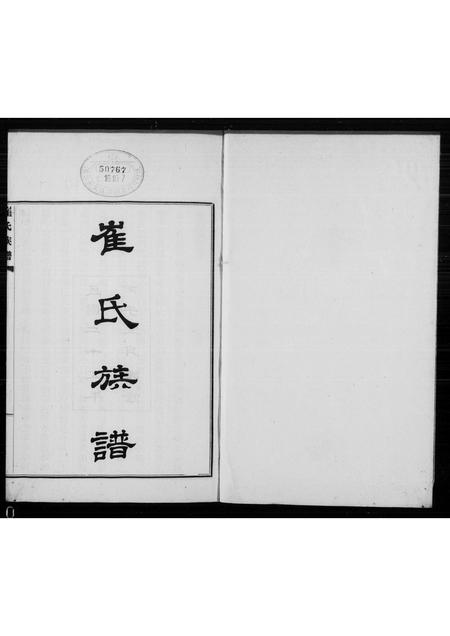 崔氏族譜
崔氏族譜
50767